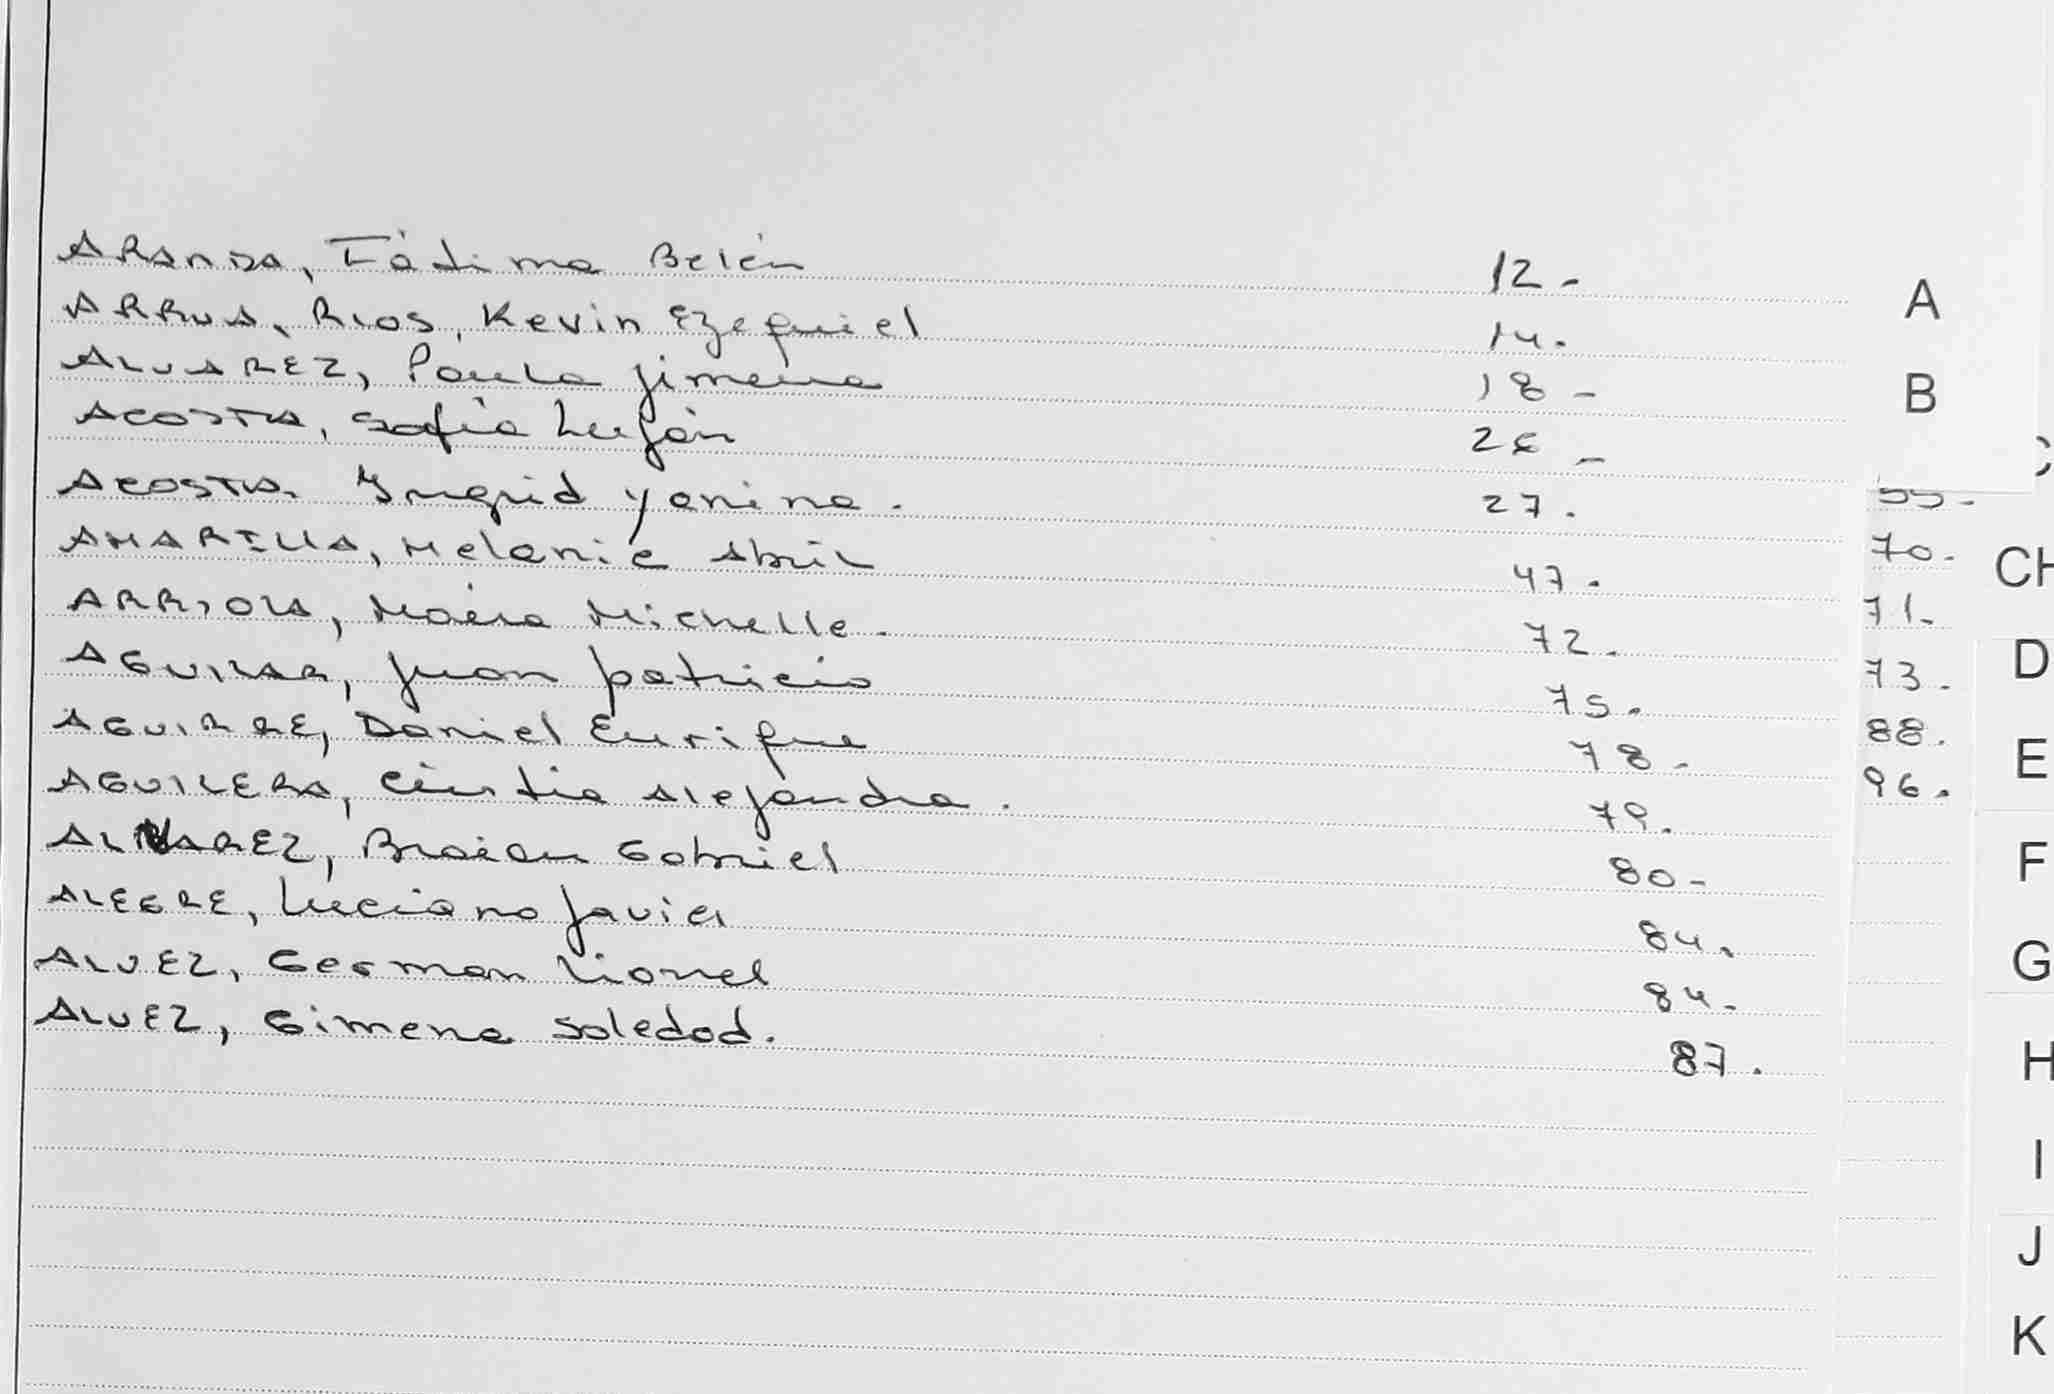 ARANDA, Fátima Belén 12-
ARRUA, RIOS, Kevin Ezequiel 14.
ALVAREZ, Paula Jimena 18-
ACOSTA, Sofía Luján 26-
ACOSTA, Yngrid Yanina. 27.
AMARILLA, Melanie Abril 47.
ARRIOLA, María Michelle. 72.
AGUILAR, Juan Patricio 75.
AGUIRRE, Daniel Enrique 78-
AGUILERA, Cintia Alejandra. 79.
ALVAREZ, Braian Gabriel 80-
ALEGRE, Luciano Javier 84.
ALVEZ, German Lionel 84-
ALVEZ, Gimena Soledad. 87.
55-
70.
71-
73.
88.
96.
A
B
C
CH
D
E
F
G
H
I
J
K